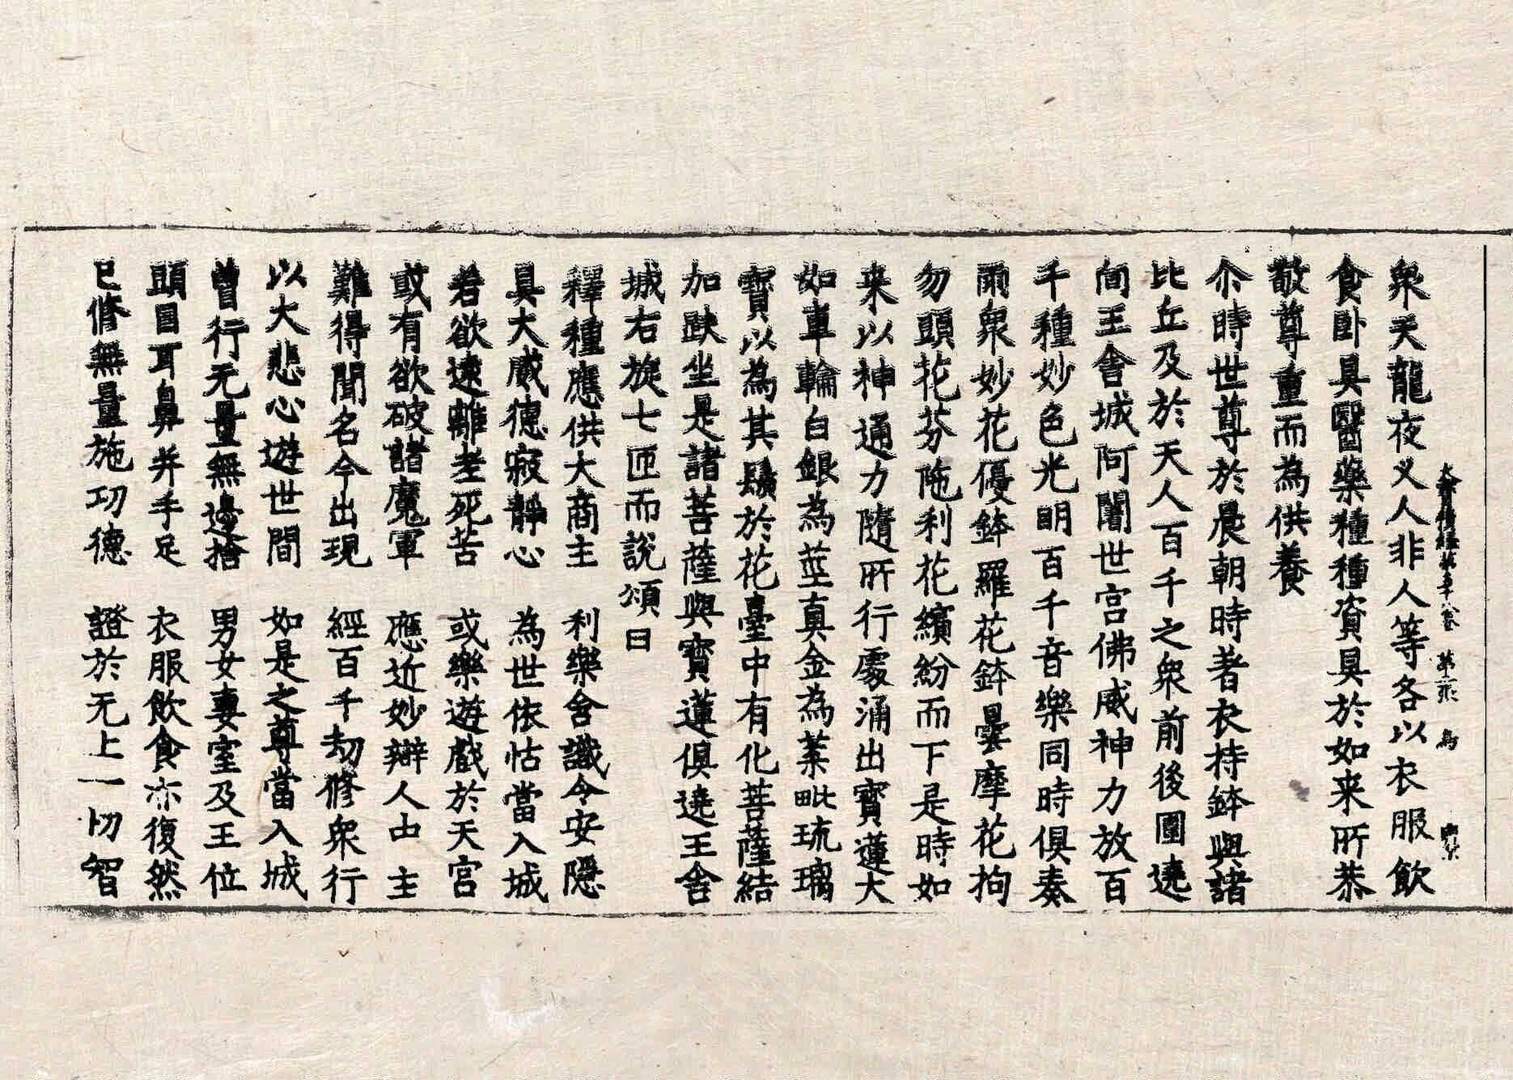 大寶積經第五十八卷 第二張 鳥
衆天龍夜叉人非人等各以衣服飲
食卧具醫藥種種資具於如来所恭
敬尊重而為供養
尒時世尊於晨朝時著衣持鉢與諸
比丘及於天人百千之衆前後圍遶
向王舍城阿闍世宫佛威神力放百
千種妙色光明百千音樂同時俱奏
雨衆妙花優鉢羅花鉢曇摩花拘
勿頭花芬陁利花繽紛而下是時如
来以神通力隨所行處涌出寶蓮大
如車輪白銀為莖真金為葉毗琉璃
寶以為其鬚於花臺中有化菩薩結
加趺坐是諸菩薩與寶蓮俱遶王舍
城右旋七匝而說頌曰
釋種應供大商主 利樂含識令安隱
具大威德寂靜心 為世依怙當入城
若欲遠離老死苦 或樂遊戲於天宫
或有欲破諸魔軍 應近妙辯人中主
難得聞名今出現 經百千劫修衆行
以大悲心遊世間 如是之尊當入城
曾行无量無邊捨 男女妻室及王位
頭目耳鼻并手足 衣服飲食亦復然
已修無量施功德 證於无上一切智